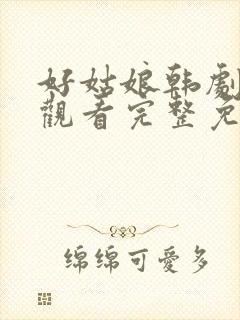 好姑娘韩劇
觀看完整免
绵绵可愛多